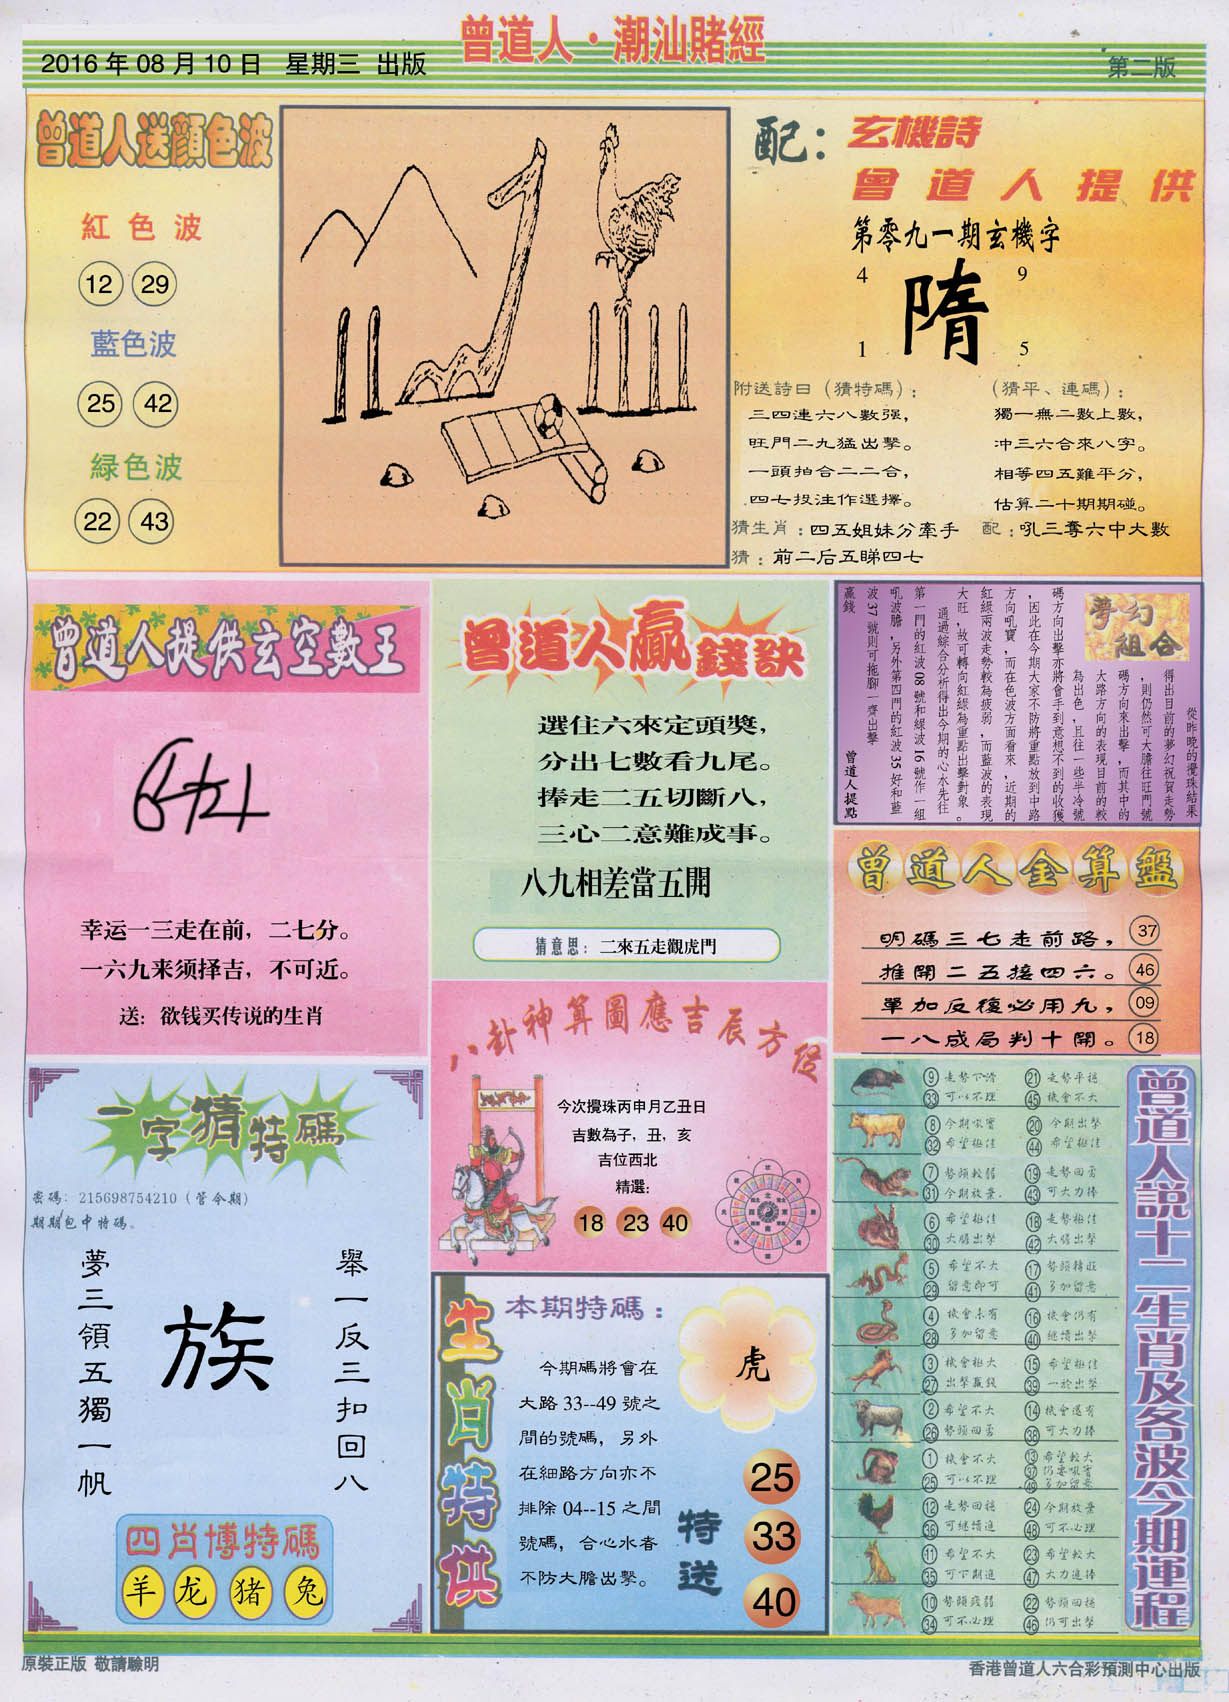 曾道人·潮汕賭經
2016 年 08 月 10 日 星期三 出版
第二版
曾道人送顏色波
紅色波
12 29
藍色波
25 42
緑色波
22 43
配：
玄機詩
曾道人提供
第零九一期玄機字
4 9
隋
1 5
附送詩曰（猜特碼）：
三四連六八數强，
旺門二九猛出擊。
一頭拍合二二合，
四七投注作選擇。
（猜平、連碼）：
獨一無二數上數，
冲三六合來八字。
相等四五難平分，
估算二十期期碰。
猜生肖：四五姐妹分牽手
配：吼三奪六中大數
猜：前二后五睇四七
曾道人提供玄空數王
幸运一三走在前，二七分。
一六九来须择吉，不可近。
送：欲钱买传说的生肖
曾道人贏錢訣
選住六來定頭獎，
分出七數看九尾。
捧走二五切斷八，
三心二意難成事。
八九相差當五開
猜意思：二來五走觀虎門
夢幻組合
從昨晚的攪珠結果
得出目前的夢幻祝賀走勢
，則仍然可大膽往旺門號
碼方向來出擊，而其中的
大路方向的表現目前的較
為出色，且往一些半冷號
碼方向出擊亦將會手到意想不到的收獲
，因此在今期大家不防將重點放到中路
方向吼寶，而在色波方面看來，近期的
紅綠兩波走勢較為疲弱，而藍波的表現
大旺，故可轉向紅綠為重點出擊對象。
通過綜合分析得出今期的心水先往
第一門的紅波 08 號和綠波 16 號作一組
吼波膽，另外第四門的紅波 35 好和藍
波 37 號則可拖腳一齊出擊
贏錢
曾道人提點
曾道人金算盤
明碼三七走前路， 37
推開二五接四六。 46
單加反後必用九， 09
一八成局判十開。 18
一字猜特碼
密碼：215698754210（管令期）
期期包中特碼。
舉一反三扣回八
族
夢三領五獨一帆
四肖博特碼
羊 龙 猪 兔
八卦神算圖應吉辰方位
今次攪珠丙申月乙丑日
吉數為子，丑，亥
吉位西北
精選：
18 23 40
生肖特供
本期特碼：
虎
今期碼將會在
大路 33--49 號之
間的號碼，另外
在細路方向亦不
排除 04--15 之間
號碼，合心水者
不防大膽出擊。
特送
25
33
40
曾道人說十二生肖及各波今期運程
9 走勢下滑 21 走勢平穩
33 可以不理 45 機會不大
8 今期吼實 20 今期出擊
32 希望極佳 44 希望極佳
7 勢頭較弱 19 走勢回勇
31 今期放棄 43 可大力捧
6 希望極佳 18 走勢極佳
30 大膽出擊 42 大膽出擊
5 希望不大 17 勢頭轉旺
29 留意即可 41 多加留意
4 機會未有 16 機會仍有
28 多加留意 40 繼續出擊
3 機會極大 15 希望極佳
27 出擊贏錢 39 一於出擊
2 希望不大 14 機會還有
26 勢頭回勇 38 可大力捧
1 機會不大 13 希望較大
25 可以不理 37 仍要吼實
49 多加留意
12 走勢回穩 24 今期放棄
36 可繼續進 48 可不必理
11 希望不大 23 希望較大
35 可下期進 47 大力進捧
10 勢頭疲弱 22 勢頭回穩
34 可不必理 46 仍可出擊
原裝正版 敬請驗明
香港曾道人六合彩預測中心出版